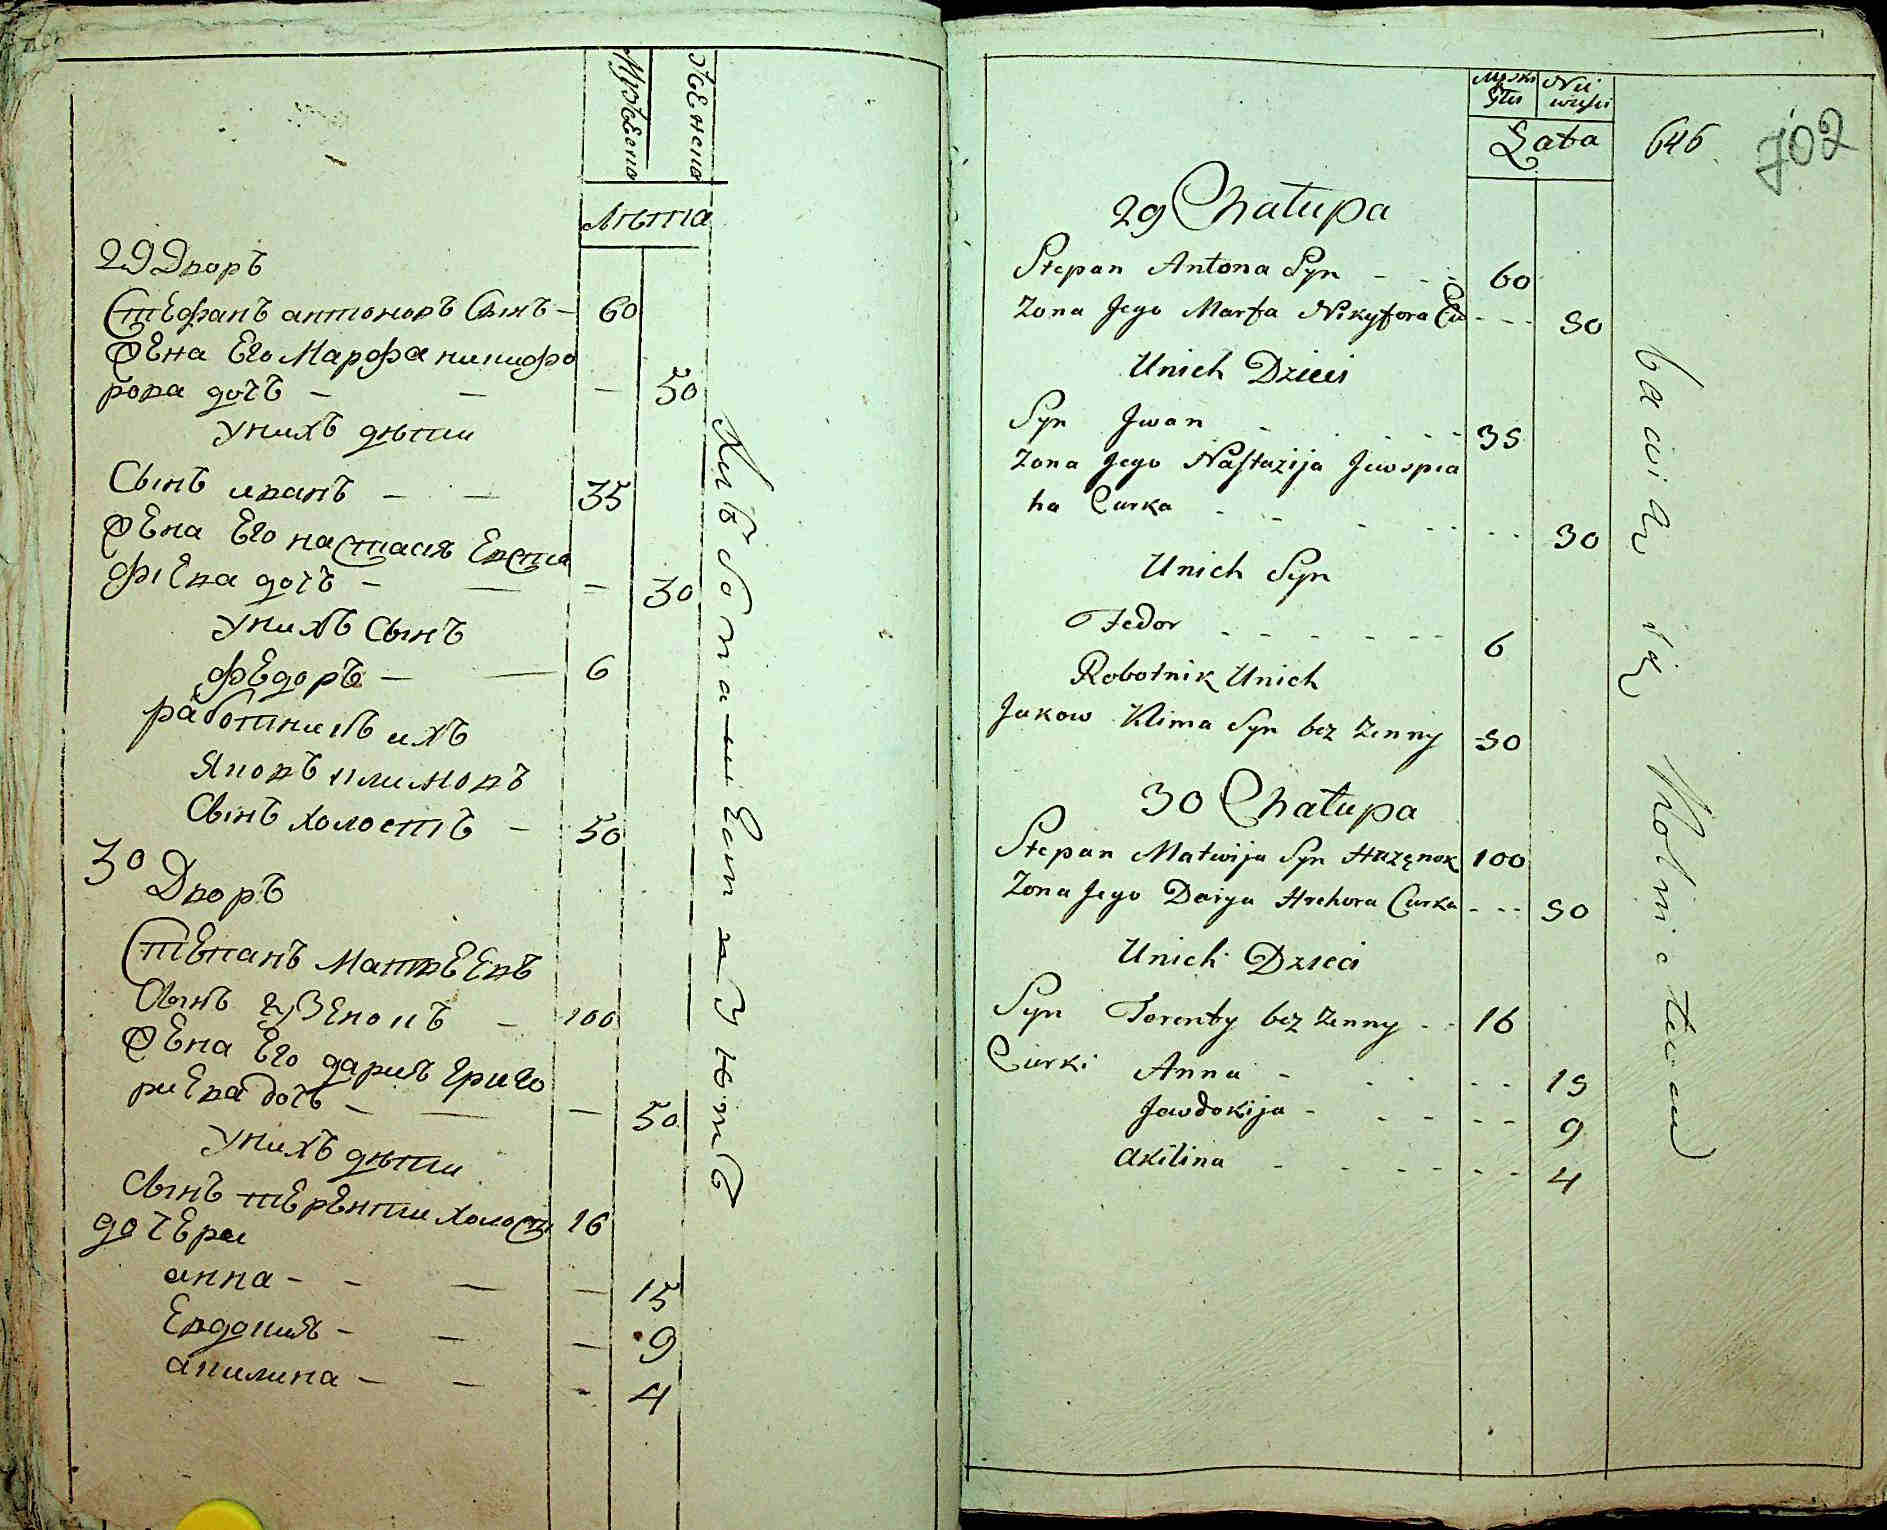 Мужеска
Женска
Лѣта
29 Дворъ
Стефанъ антоновъ Сынъ — 60
Жена Его Марфа никифо
рова дочь — — — 50
у нихъ дѣти
Сынъ иванъ — — 35
Жена Его настасія Евста
фіева дочь — — — 30
у нихъ Сынъ
федоръ — — 6
работникъ ихъ
Яковъ климовъ
Сынъ холостъ — 50
30 Дворъ
Степанъ Матвеевъ
Сынъ гузенокъ — 100
Жена Его дария григо
риева дочь — — — 50
у нихъ дѣти
Сынъ терентии холостъ 16
дочери
анна — — — — 15
Евдокия — — — 9
акилина — — — 4
Męski
Płci
Nie
wieści
Lata
646
702
29 Chałupa
Stepan Antona Syn - - - 60
Zona Jego Marfa Nikyfora Cu - - - 50
Unich Dzieci
Syn Jwan - - - - - 35
Zona Jego Nastazija Jewspia
ha Curka - - - - - - - 30
Unich Syn
Fedor - - - - - - - 6
Robotnik Unich
Jakow Klima Syn bez Zenny 50
30 Chałupa
Stepan Matwija Syn Huzęnok 100
Zona Jego Darya Hrehora Curka - - - 50
Unich Dzieci
Syn Terenty bez Zenny - - 16
Curki Anna - - - - - 15
Jewdokija - - - - - - 9
Akilina - - - - - - 4
bawią się Rolnictwem